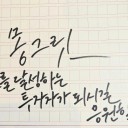 몽그릿
를 달성하는
투자자가 되시길
응원합